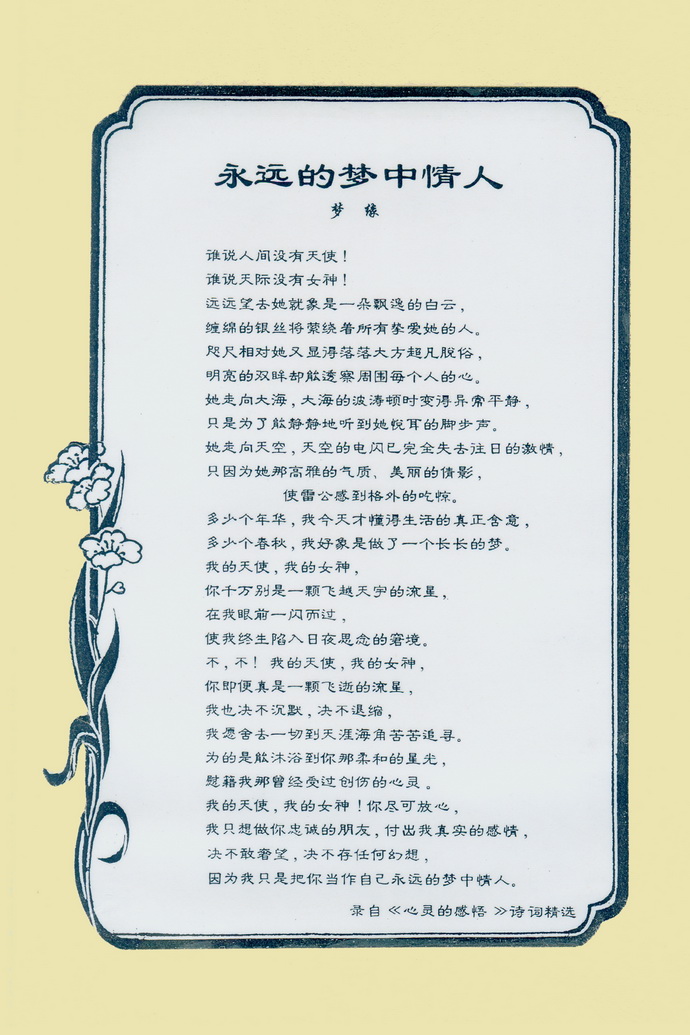 永远的梦中情人
梦 缘
谁说人间没有天使！
谁说天际没有女神！
远远望去她就象是一朵飘逸的白云，
缠绵的银丝将萦绕着所有挚爱她的人。
咫尺相对她又显得落落大方超凡脱俗，
明亮的双眸却能透察周围每个人的心。
她走向大海，大海的波涛顿时变得异常平静，
只是为了能静静地听到她悦耳的脚步声。
她走向天空，天空的电闪已完全失去往日的激情，
只因为她那高雅的气质、美丽的倩影，
使雷公感到格外的吃惊。
多少个年华，我今天才懂得生活的真正含意，
多少个春秋，我好象是做了一个长长的梦。
我的天使，我的女神，
你千万别是一颗飞越天宇的流星，
在我眼前一闪而过，
使我终生陷入日夜思念的窘境。
不，不！ 我的天使，我的女神，
你即便真是一颗飞逝的流星，
我也决不沉默，决不退缩，
我愿舍去一切到天涯海角苦苦追寻。
为的是能沐浴到你那柔和的星光，
慰籍我那曾经受过创伤的心灵。
我的天使，我的女神！你尽可放心，
我只想做你忠诚的朋友，付出我真实的感情，
决不敢奢望，决不存任何幻想，
因为我只是把你当作自己永远的梦中情人。
录自《心灵的感悟》诗词精选